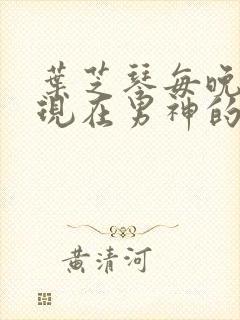 葉芝琴每晚
現在男神的
黃清河